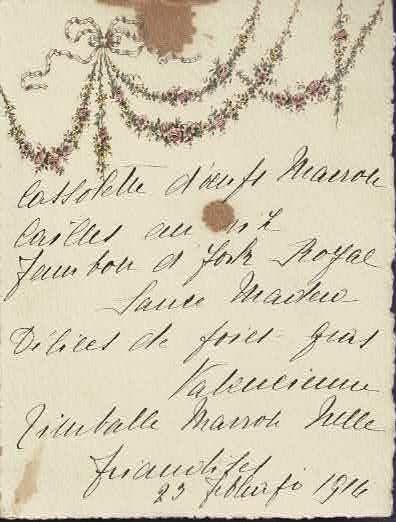 Cassolette d'œufs Marron
Cailles au riz
Jambon d'York Royal
Sauce Madere
Délices de foies-gras
Valencienne
Timballe Marron Nelle
Friandises
23 1916